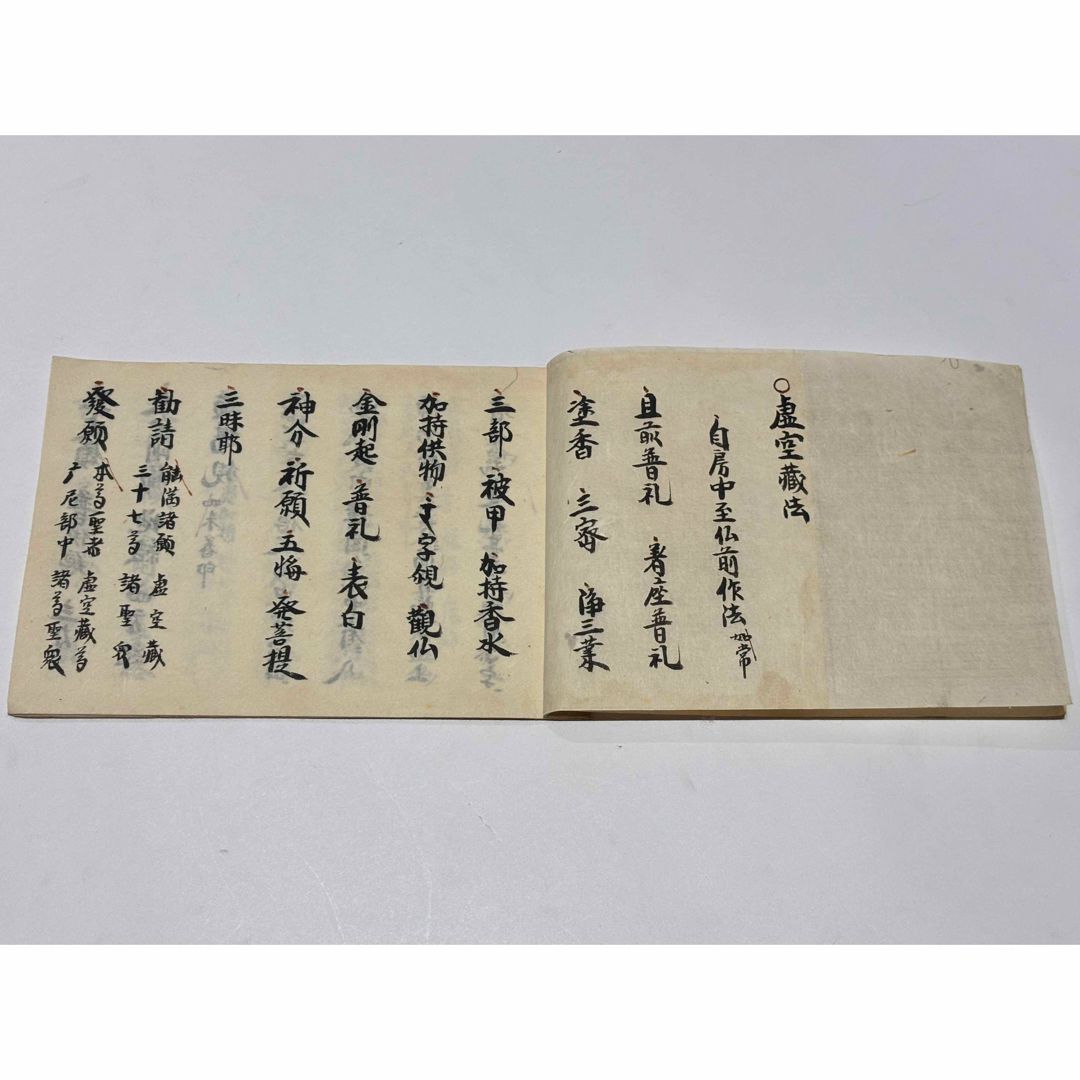 ○虚空藏法
自房中至仏前作法如常
且前普礼 着座普礼
塗香 三密 浄三業
三部 被甲 加持香水
加持供物 字観 觀仏
金剛起 普礼 表白
神分 祈願 五悔 発菩提
三昧耶
勸請 能满諸願 虚空藏
三十七尊 諸聖衆
發願 本尊聖者 虚空藏尊
广尼部中 諸尊聖衆